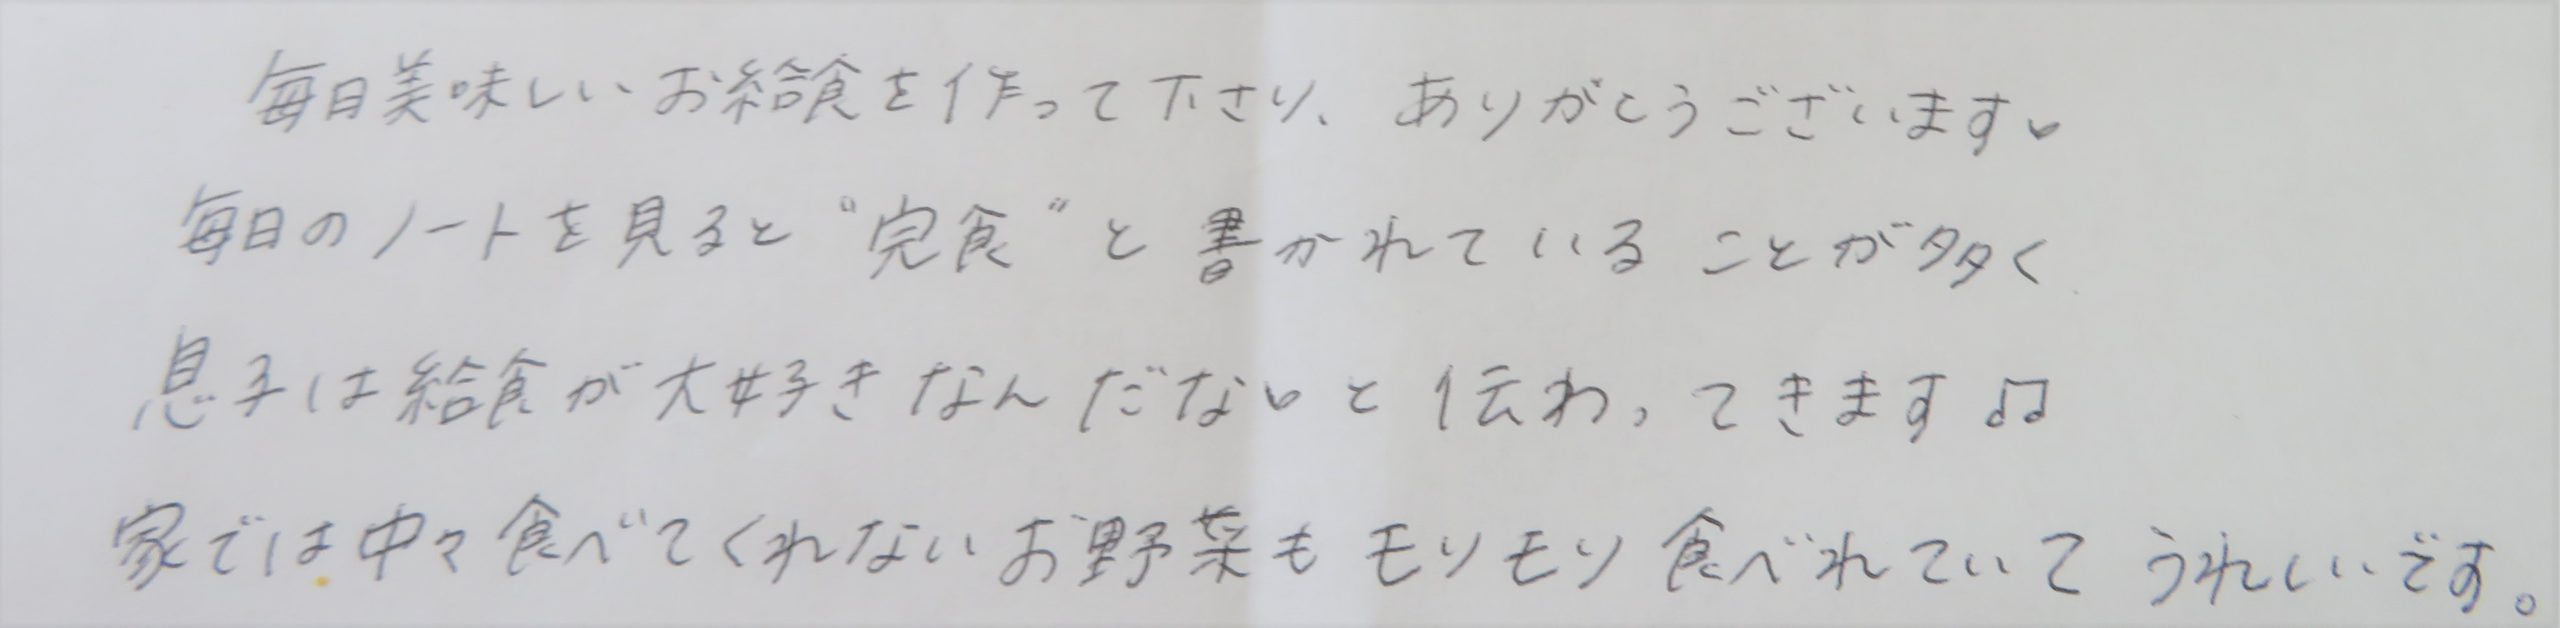 毎日美味しいお給食を作って下さり、ありがとうございます♡
毎日のノートを見ると“完食”と書かれていることが多く
息子は給食が大好きなんだな♡と伝わってきます♫
家では中々食べてくれないお野菜もモリモリ食べれていてうれしいです。